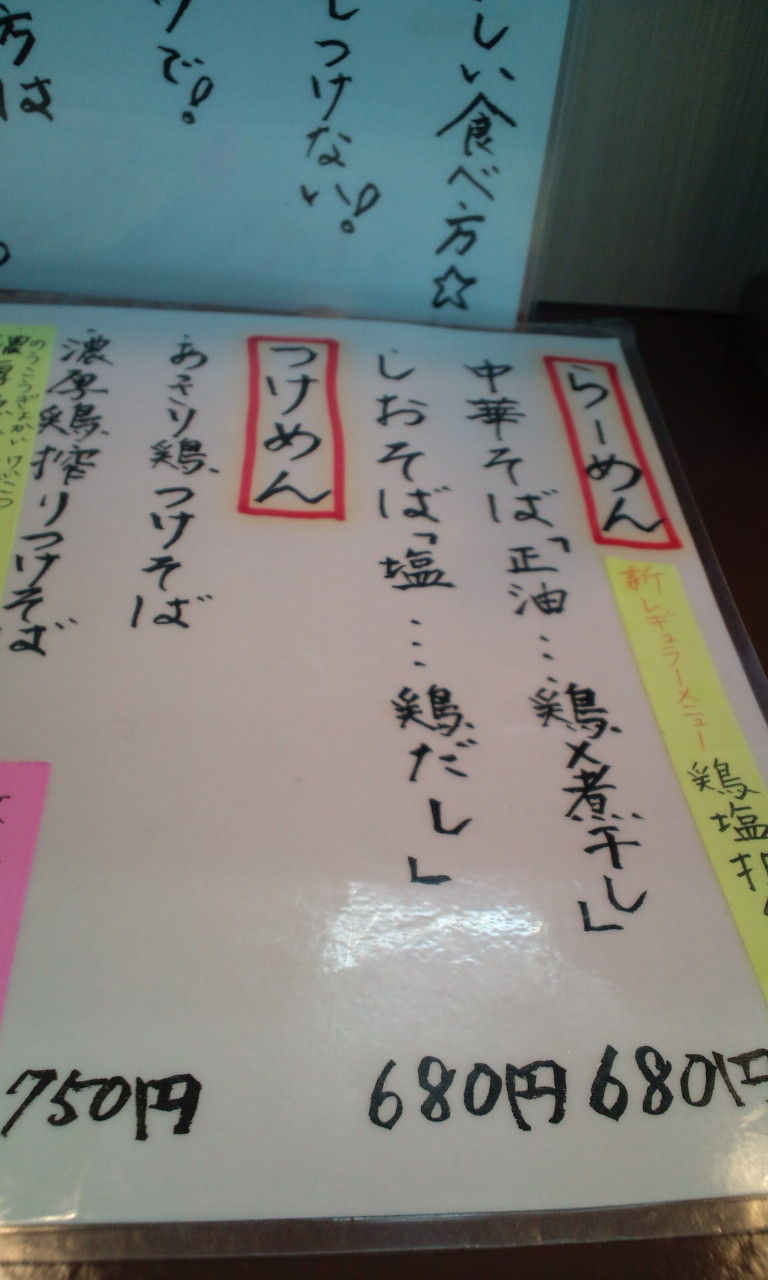 しい食べ方☆
しつけない!
で!
方は
らーめん
新レギュラーメニュー 鶏塩
中華そば「正油…鶏×煮干し」
680円
しおそば「塩…鶏だし」
680円
つけめん
あさり鶏つけそば
750円
濃厚鶏搾りつけそば
のうこうぎょかい けいこつ